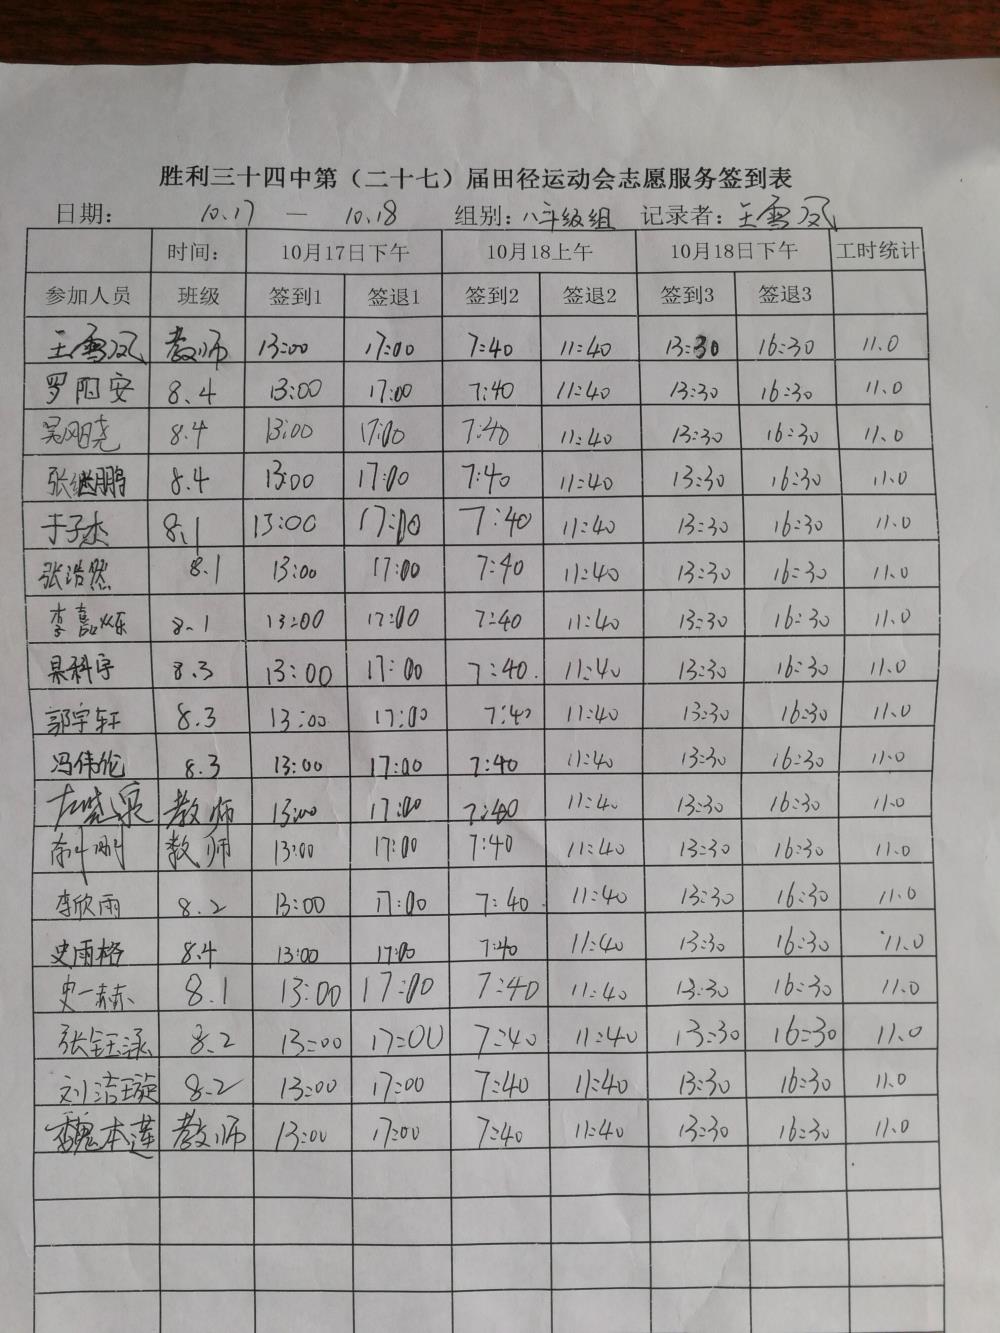 胜利三十四中第（二十七）届田径运动会志愿服务签到表
日期： 10.17 — 10.18 组别：八年级组 记录者：王雪凤
时间： 10月17日下午 10月18上午 10月18日下午 工时统计
参加人员 班级 签到1 签退1 签到2 签退2 签到3 签退3
王雪凤 教师 13:00 17:00 7:40 11:40 13:30 16:30 11.0
罗阳安 8.4 13:00 17:00 7:40 11:40 13:30 16:30 11.0
吴晓 8.4 13:00 17:00 7:40 11:40 13:30 16:30 11.0
张继鹏 8.4 13:00 17:00 7:40 11:40 13:30 16:30 11.0
于子杰 8.1 13:00 17:00 7:40 11:40 13:30 16:30 11.0
张浩然 8.1 13:00 17:00 7:40 11:40 13:30 16:30 11.0
李嘉烁 8.1 13:00 17:00 7:40 11:40 13:30 16:30 11.0
杲科宇 8.3 13:00 17:00 7:40 11:40 13:30 16:30 11.0
郭宇轩 8.3 13:00 17:00 7:40 11:40 13:30 16:30 11.0
冯伟伦 8.3 13:00 17:00 7:40 11:40 13:30 16:30 11.0
左晓泉 教师 13:00 17:00 7:40 11:40 13:30 16:30 11.0
刚 教师 13:00 17:00 7:40 11:40 13:30 16:30 11.0
李欣雨 8.2 13:00 17:00 7:40 11:40 13:30 16:30 11.0
史雨格 8.4 13:00 17:00 7:40 11:40 13:30 16:30 11.0
史一赫 8.1 13:00 17:00 7:40 11:40 13:30 16:30 11.0
张钰泳 8.2 13:00 17:00 7:40 11:40 13:30 16:30 11.0
刘洁璇 8.2 13:00 17:00 7:40 11:40 13:30 16:30 11.0
魏本莲 教师 13:00 17:00 7:40 11:40 13:30 16:30 11.0